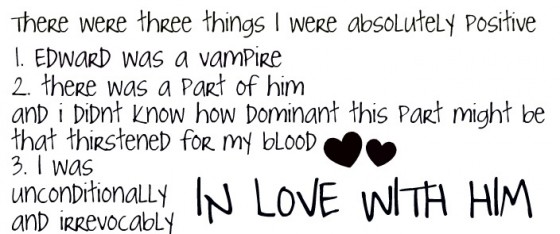 There were three things I were absolutely positive
1. Edward was a vampire
2. there was a part of him
and i didnt know how dominant this part might be
that thirstened for my blood
3. I was
unconditionally
and irrevocably
IN LOVE WITH HIM